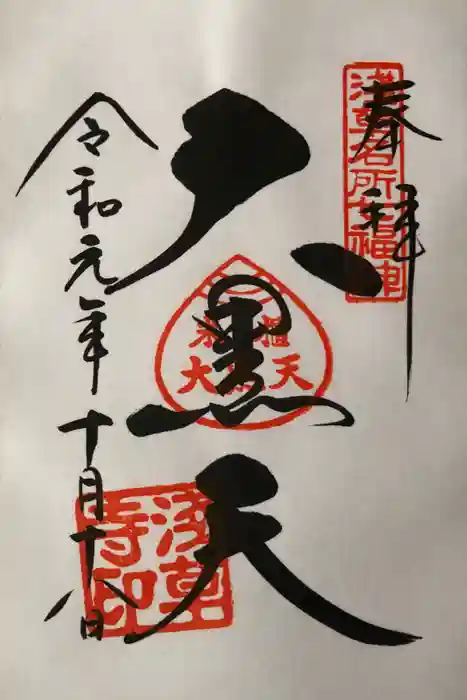 奉拝
浅草名所七福神
大黒天
米櫃
大黒天
浅草寺印
令和元年十月十八日